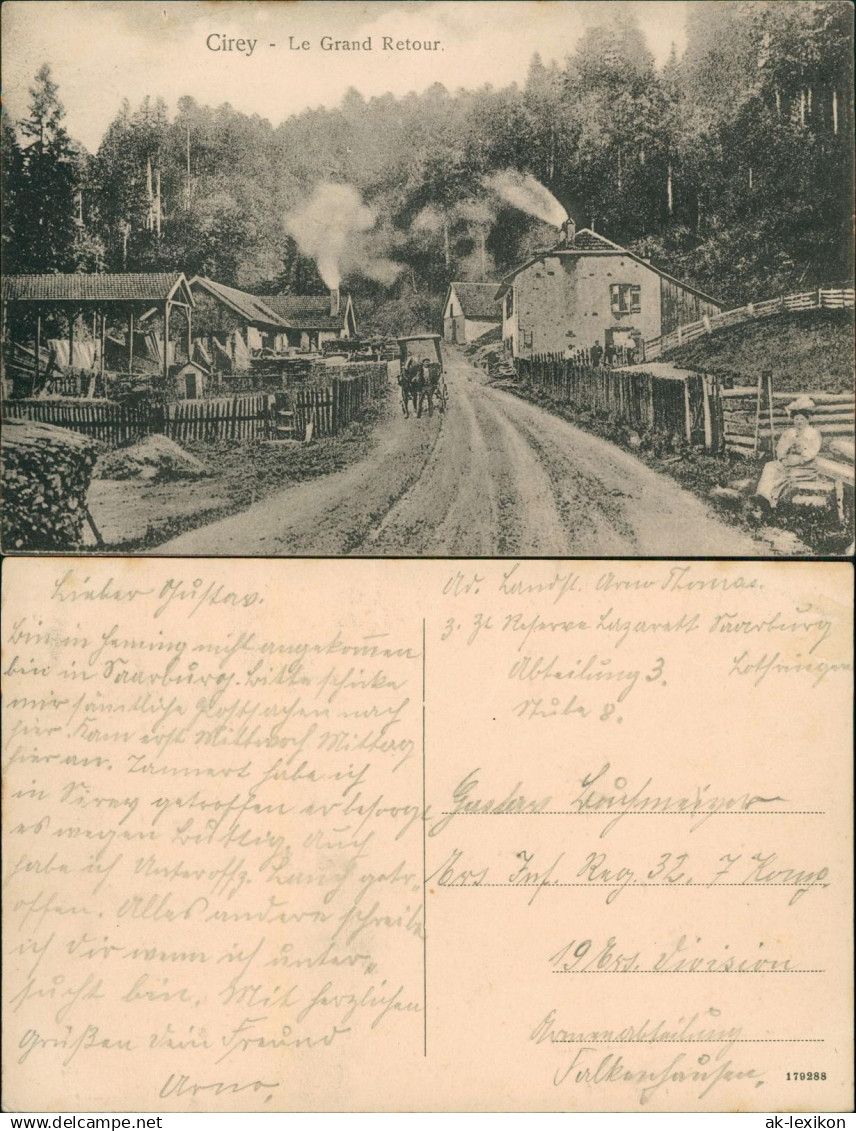 Cirey - Le Grand Retour.
Lieber Gustav.
Bin in Heming nicht angekommen
bin in Saarburg. Bitte schicke
mir sämtliche Postsachen nach
hier. Kam erst Mittwoch Mittag
hier an. Tannert habe ich
in Sirey getroffen er besorgt
es wegen Buttig. Auch
habe ich Unteroffz. Lang getr-
offen. Alles andere schreibe
ich Dir wenn ich unter-
sucht bin. Mit herzlichen
Grüßen Dein Freund
Arno.
Ad. Landst. Arno Thomas.
z. Zt Reserve Lazarett Saarburg
Abteilung 3. Lothringen
Stube 8.
Gustav
Ers Inf. Reg. 32. 7 Komp.
19 Ers. Division
Armeeabteilung
Falkenhausen.
179288
ak-lexikon
DELCAMPE.NET
ak-lexikon